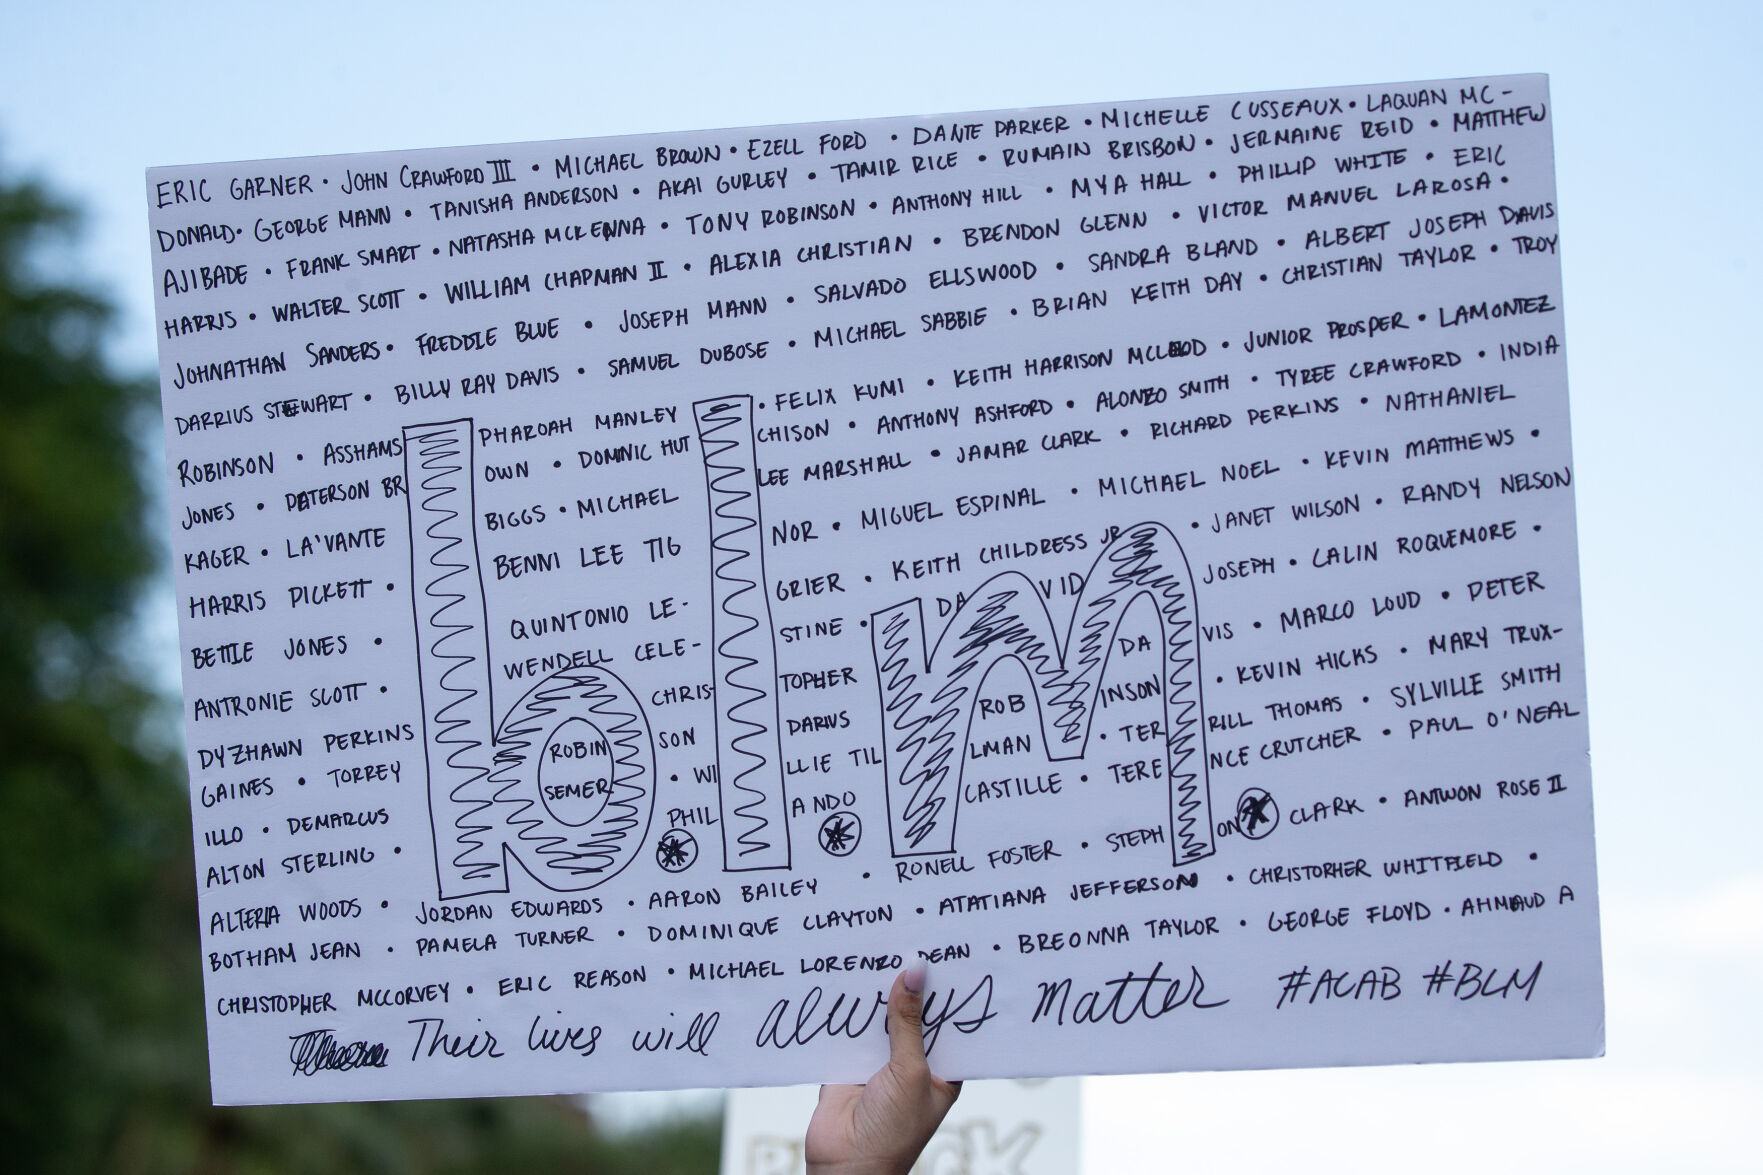 ERIC GARNER • JOHN CRAWFORD III • MICHAEL BROWN • EZELL FORD • DANTE PARKER • MICHELLE CUSSEAUX • LAQUAN MC-
DONALD • GEORGE MANN • TANISHA ANDERSON • AKAI GURLEY • TAMIR RICE • RUMAIN BRISBON • JERMAINE REID • MATTHEW
AJIBADE • FRANK SMART • NATASHA MCKENNA • TONY ROBINSON • ANTHONY HILL • MYA HALL • PHILLIP WHITE • ERIC
HARRIS • WALTER SCOTT • WILLIAM CHAPMAN II • ALEXIA CHRISTIAN • BRENDON GLENN • VICTOR MANUEL LAROSA •
JOHNATHAN SANDERS • FREDDIE BLUE • JOSEPH MANN • SALVADO ELLSWOOD • SANDRA BLAND • ALBERT JOSEPH DAVIS
DARRIUS STEWART • BILLY RAY DAVIS • SAMUEL DUBOSE • MICHAEL SABBIE • BRIAN KEITH DAY • CHRISTIAN TAYLOR • TROY
ROBINSON • ASSHAMS PHAROAH MANLEY • FELIX KUMI • KEITH HARRISON MCLEOD • JUNIOR PROSPER • LAMONTEZ
JONES • PATERSON BROWN • DOMINIC HUTCHISON • ANTHONY ASHFORD • ALONZO SMITH • TYREE CRAWFORD • INDIA
KAGER • LA'VANTE BIGGS • MICHAEL LEE MARSHALL • JAMAR CLARK • RICHARD PERKINS • NATHANIEL
HARRIS PICKETT • BENNI LEE TIGNOR • MIGUEL ESPINAL • MICHAEL NOEL • KEVIN MATTHEWS •
BETTIE JONES • QUINTONIO LE-GRIER • KEITH CHILDRESS JR • JANET WILSON • RANDY NELSON
ANTRONIE SCOTT • WENDELL CELE-STINE • DAVID JOSEPH • CALIN ROQUEMORE •
DYZHAWN PERKINS CHRISTOPHER DAVIS • MARCO LOUD • PETER
GAINES • TORREY ROBINSON DARIUS ROBINSON • KEVIN HICKS • MARY TRUX-
ILLO • DEMARCUS SEMER • WILLIE TILLMAN • TERRILL THOMAS • SYLVILLE SMITH
ALTON STERLING • PHILANDO CASTILLE • TERENCE CRUTCHER • PAUL O'NEAL
ALTERIA WOODS • JORDAN EDWARDS • AARON BAILEY • RONELL FOSTER • STEPHON CLARK • ANTWON ROSE II
BOTHAM JEAN • PAMELA TURNER • DOMINIQUE CLAYTON • ATATIANA JEFFERSON • CHRISTOPHER WHITFIELD •
CHRISTOPHER MCCORVEY • ERIC REASON • MICHAEL LORENZO DEAN • BREONNA TAYLOR • GEORGE FLOYD • AHMAUD A
blm
Their lives will always matter #ACAB #BLM